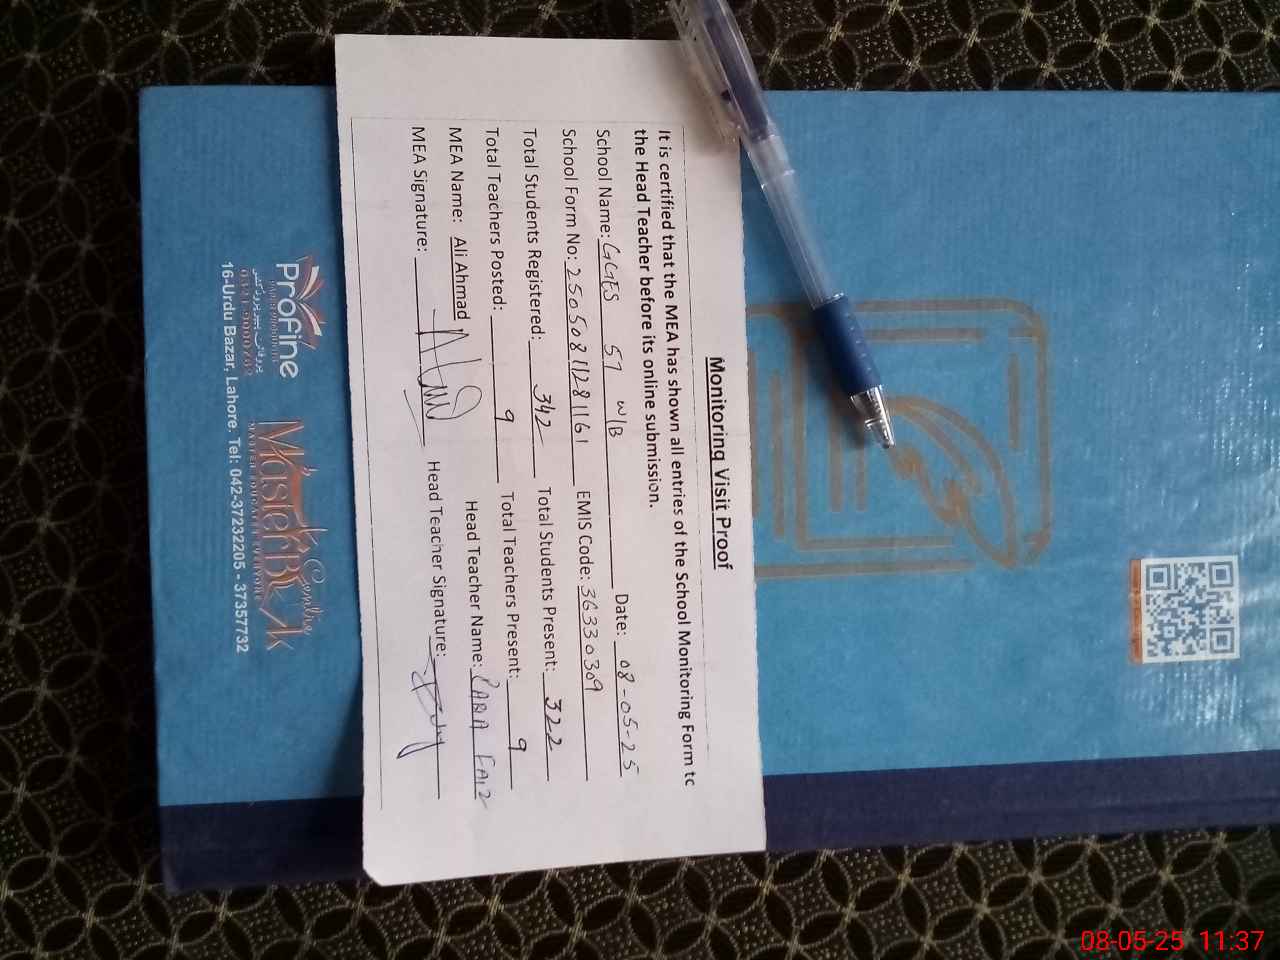 Monitoring Visit Proof
It is certified that the MEA has shown all entries of the School Monitoring Form tc
the Head Teacher before its online submission.
School Name: GGES 57 W/B Date: 08-05-25
School Form No: 25050811281161 EMIS Code: 36330309
Total Students Registered: 342 Total Students Present: 322
Total Teachers Posted: 9 Total Teachers Present: 9
MEA Name: Ali Ahmad Head Teacher Name:
MEA Signature: Head Teacher Signature:
Profine
MasterBook
16-Urdu Bazar, Lahore. Tel: 042-37232205 - 37357732
08-05-25 11:37